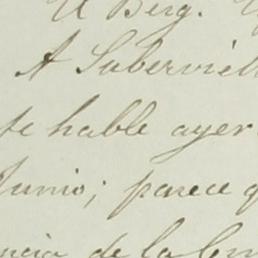 U Berg.
A Suberviell
te hable ayer
Junio; parece q
ncia de la Com